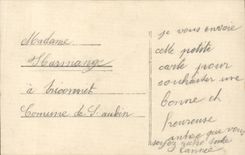 Madame
Marmange
à
Comune de S. aubin
je vous envoie
cette petite
carte pour
souhaiter une
bonne et
heureuse
année que vous
soyez toute
l'année